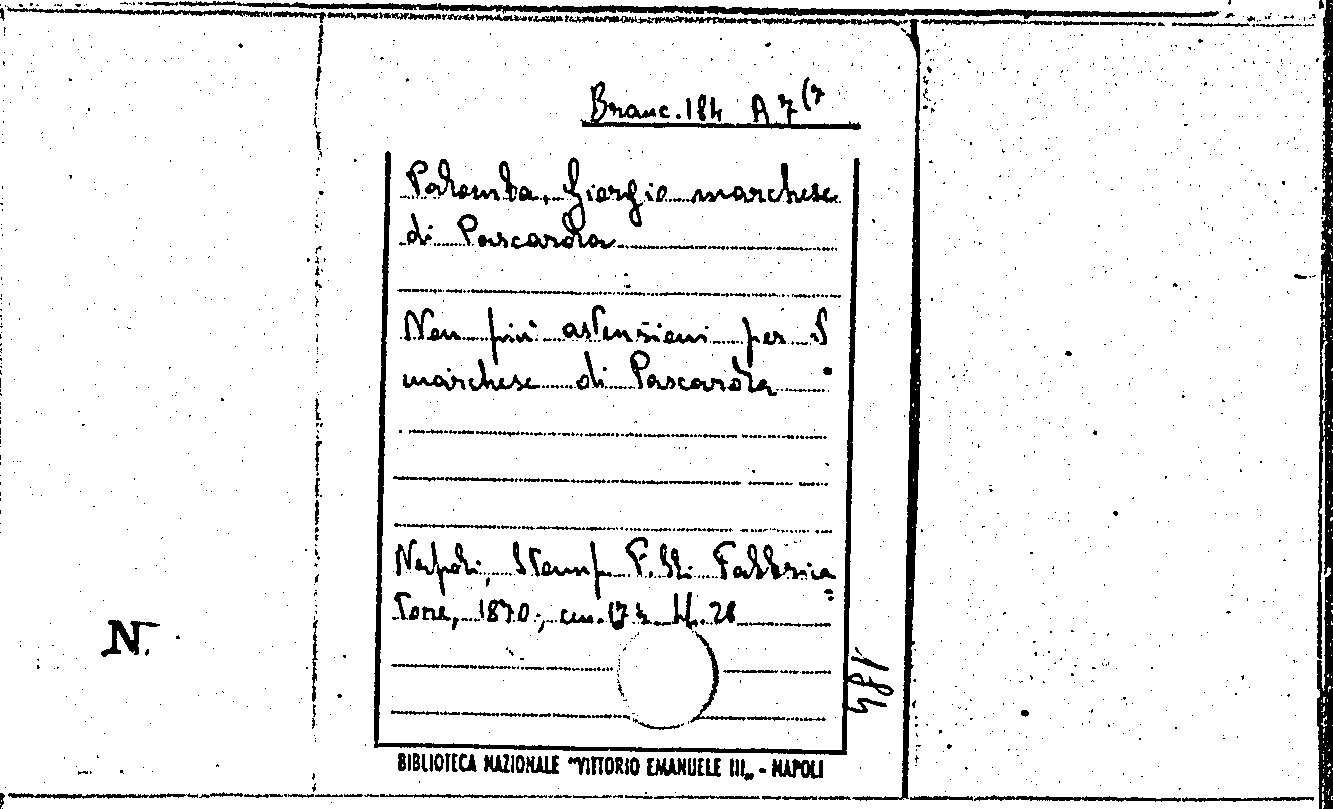 Branc. 184 A 7(7
Palomba, Giorgio marchese
di Pascarola
Non più astensioni per il
marchese di Pascarola
Napoli, Stamp. F.lli Fabbrica-
tore, 1870; cm. 17 pp. 28
N.
184
BIBLIOTECA NAZIONALE "VITTORIO EMANUELE III„ - NAPOLI